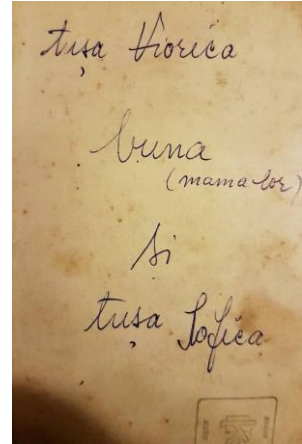 tușa Viorica
buna
(mama lor)
și
tușa Sofica